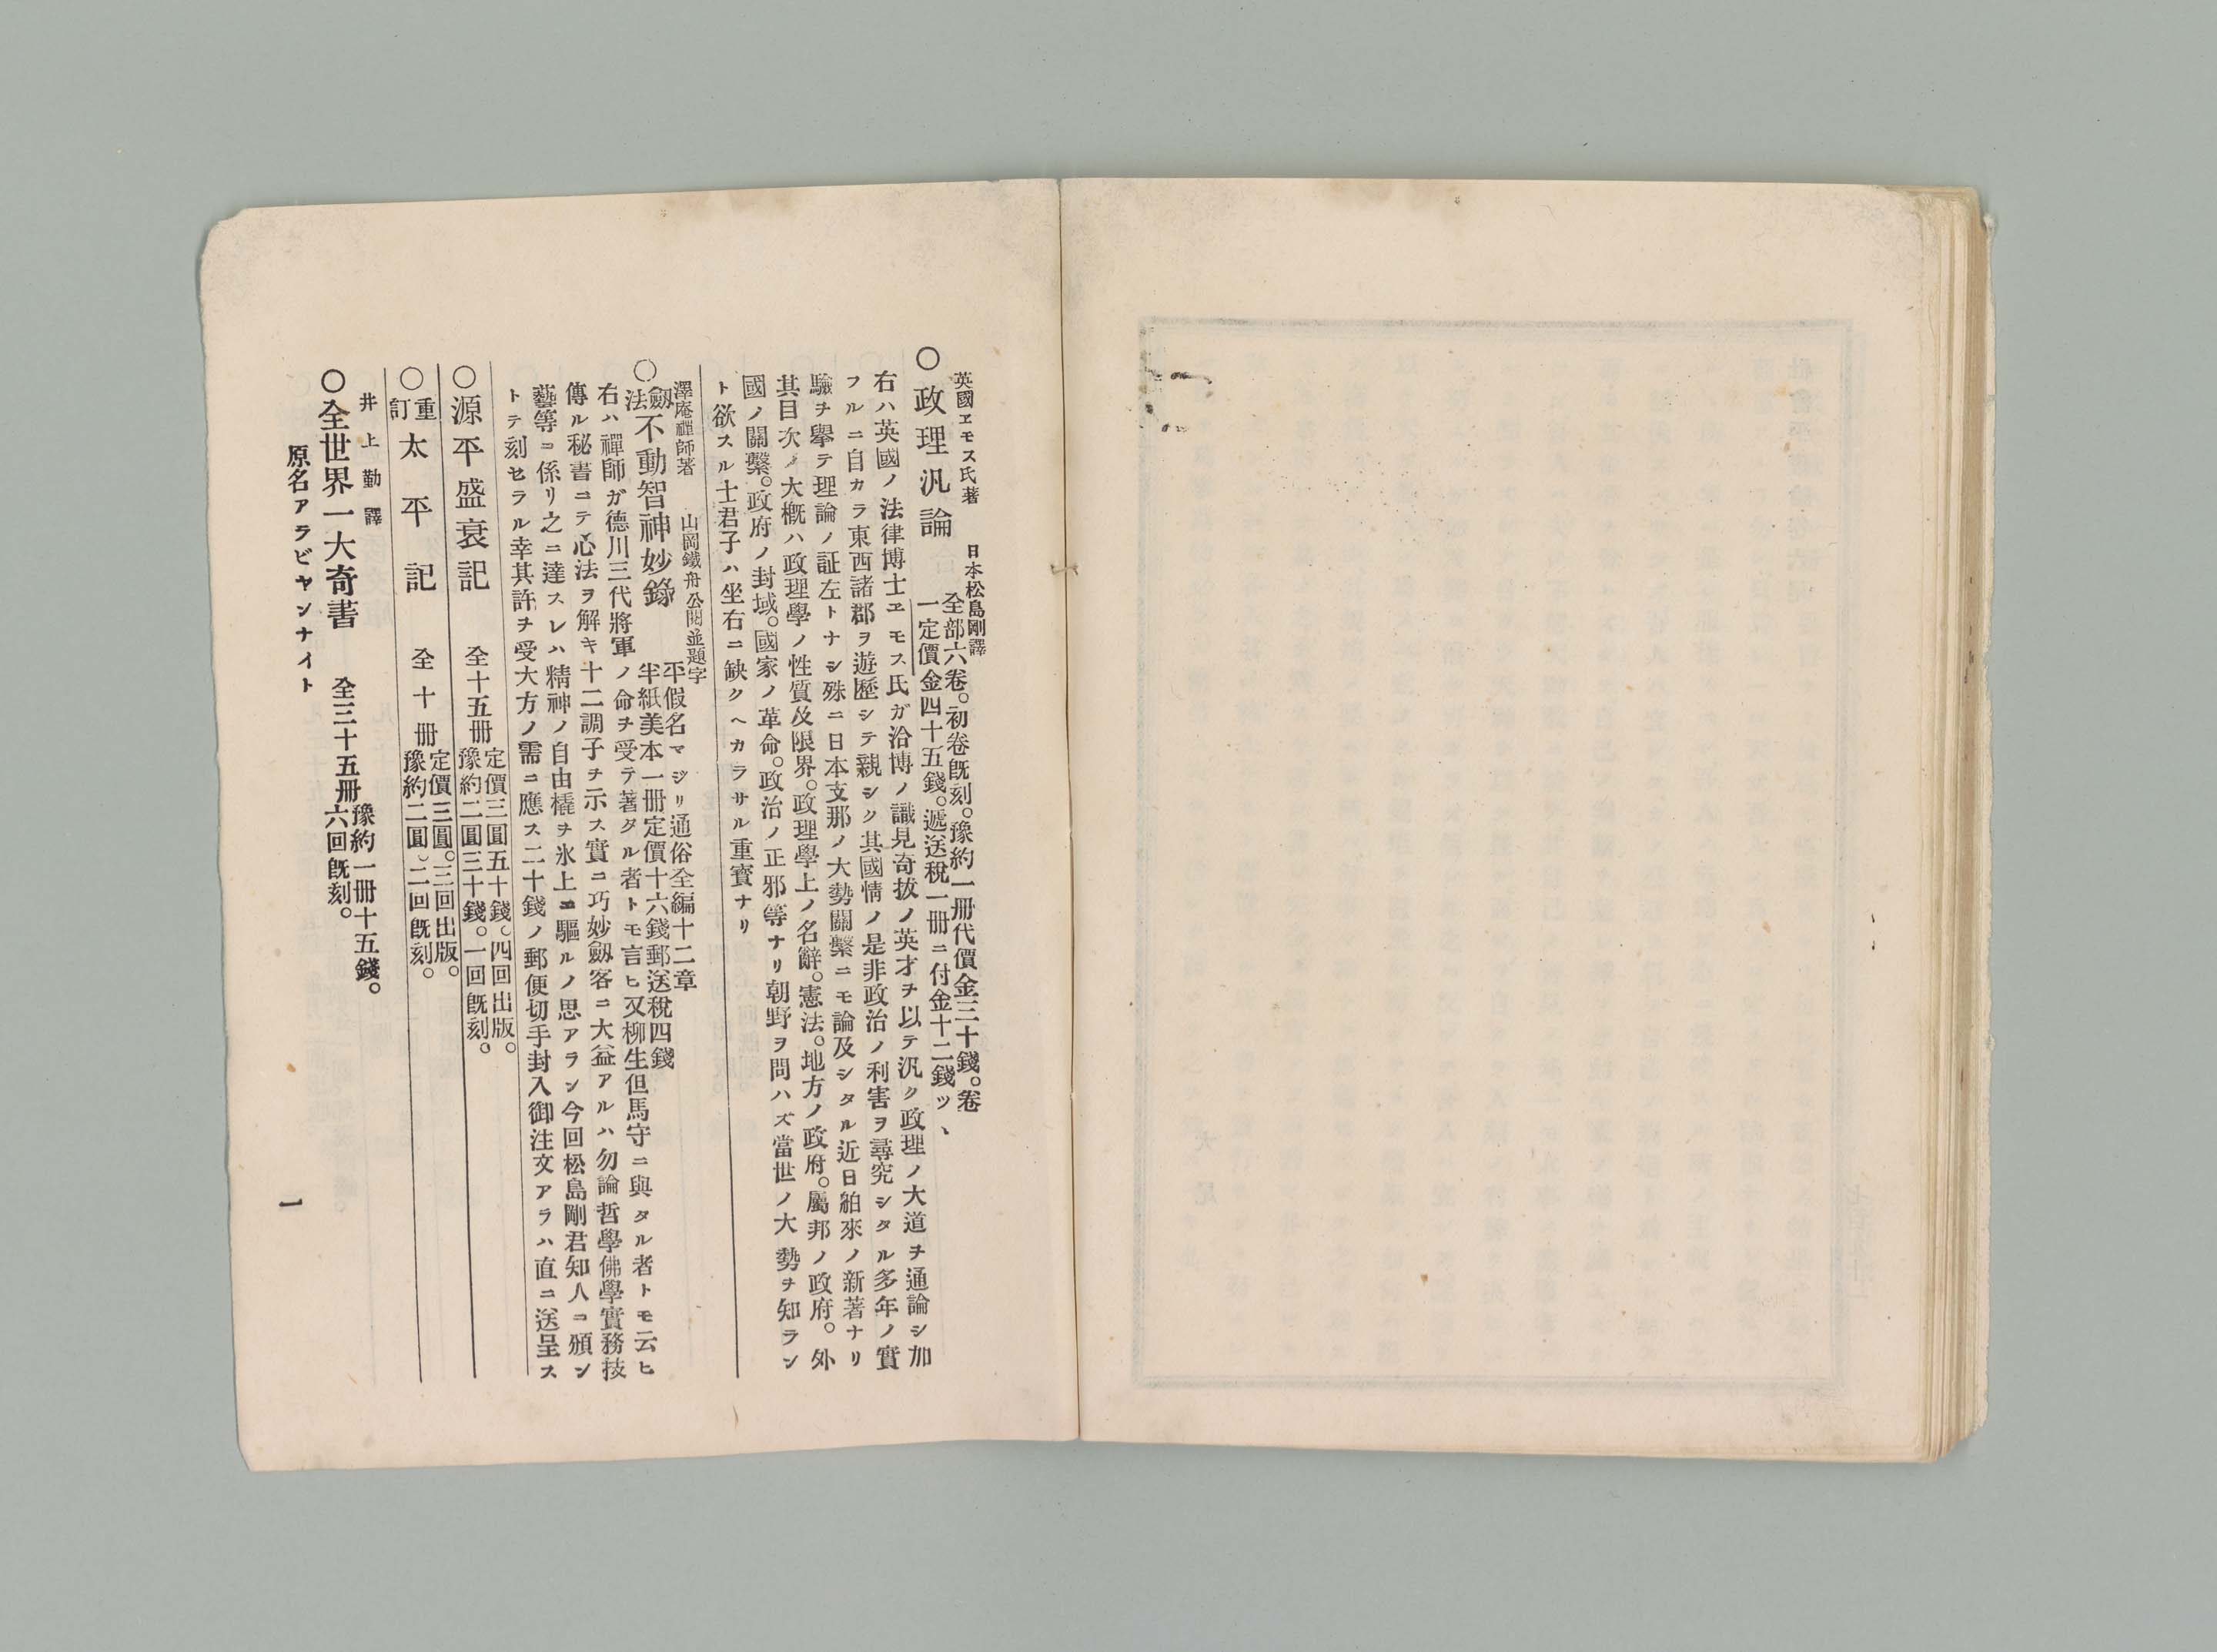 英國ヱモス氏著　日本松島剛譯
○政理汎論
全部六卷。初卷既刻。豫約一冊代價金三十錢。卷
一定價金四十五錢。遞送税一冊ニ付金十二錢ッヽ
右ハ英國ノ法律博士ヱモス氏ガ洽博ノ識見奇拔ノ英才ヲ以テ汎ク政理ノ大道ヲ通論シ加
フルニ自カラ東西諸郡ヲ遊歷シテ親シク其國情ノ是非政治ノ利害ヲ尋究シタル多年ノ實
驗ヲ擧テ理論ノ証左トナシ殊ニ日本支那ノ大勢關繫ニモ論及シタル近日舶來ノ新著ナリ
其目次ノ大槪ハ政理學ノ性質及限界。政理學上ノ名辭。憲法。地方ノ政府。屬邦ノ政府。外
國ノ關繫。政府ノ封域。國家ノ革命。政治ノ正邪等ナリ朝野ヲ問ハズ當世ノ大勢ヲ知ラン
ト欲スル士君子ハ坐右ニ缺クヘカラサル重寳ナリ
澤庵禪師著　山岡鐵舟公閲並題字
○劔法不動智神妙錄
平假名マジリ通俗全編十二章
半紙美本一冊定價十六錢郵送税四錢
右ハ禪師ガ德川三代將軍ノ命ヲ受テ著タル者トモ言ヒ又柳生但馬守ニ與タル者トモ云ヒ
傳ル秘書ニテ心法ヲ解キ十二調子ヲ示ス實ニ巧妙劔客ニ大益アルハ勿論哲學佛學實務技
藝等コ係リ之ニ達スレハ精神ノ自由橇ヲ氷上ニ驅ルノ思アラン今回松島剛君知人コ頒ン
トテ刻セラル幸其許ヲ受大方ノ需ニ應ス二十錢ノ郵便切手封入御注文アラハ直ニ送呈ス
○源平盛衰記　全十五冊
定價三圓五十錢。四回出版。
豫約二圓三十錢。一回既刻。
○重訂太平記　全十冊
定價三圓。三回出版。
豫約二圓。二回既刻。
井上勤譯
○全世界一大奇書　全三十五冊
豫約一冊十五錢。
六回既刻。
原名アラビヤンナイト
一